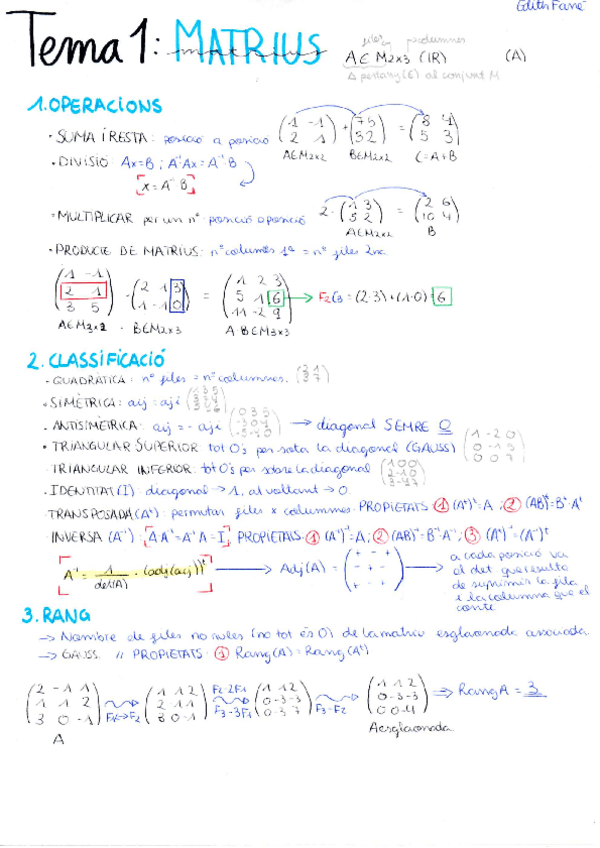 Edith Fané
Tema 1: MATRIUS
files columnes
A ∈ M2x3 (IR) (A)
A pertany (∈) al conjunt M
1. OPERACIONS
· SUMA I RESTA: posició a posició (1 -1 / 2 1) + (7 5 / 3 2) = (8 4 / 5 3)
A∈M2x2 B∈M2x2 C=A+B
· DIVISIÓ: Ax=B ; A⁻¹Ax = A⁻¹B
x = A⁻¹B
· MULTIPLICAR per un nº: posició a posició 2·(1 3 / 5 2) = (2 6 / 10 4)
A∈M2x2 B
· PRODUCTE DE MATRIUS: nº columnes 1ª = nº files 2na
(1 -1 / 2 1 / 3 5) · (2 1 3 / 1 -1 0) = (1 2 3 / 5 1 6 / 11 -2 9) → F2C3 = (2·3)+(1·0) = 6
A∈M3x2 · B∈M2x3 A·B∈M3x3
2. CLASSIFICACIÓ
· QUADRÀTICA: nº files = nº columnes.
· SIMÈTRICA: aij = aji
· ANTISIMÈTRICA: aij = - aji (0 3 5 / -3 0 4 / -5 -4 0) → diagonal SEMRE 0
· TRIANGULAR SUPERIOR tot 0's per sota la diagonal (GAUSS) (1 -2 0 / 0 -1 5 / 0 0 7)
TRIANGULAR INFERIOR tot 0's per sobre la diagonal (1 0 0 / 2 -1 0 / 3 -4 7)
· IDENTITAT (I): diagonal → 1, al voltant → 0
TRANSPOSADA (Aᵗ): permutar files x columnes. PROPIETATS ① (Aᵗ)ᵗ = A ; ② (AB)ᵗ = Bᵗ·Aᵗ
· INVERSA (A⁻¹): A·A⁻¹ = A⁻¹·A = I PROPIETATS ① (A⁻¹)⁻¹ = A ; ② (AB)⁻¹ = B⁻¹A⁻¹ ; ③ (Aᵗ)⁻¹ = (A⁻¹)ᵗ
A⁻¹ = 1/det(A) · (adj(aij))ᵗ → Adj(A) = (+ - + / - + - / + - +) → a cada posició va
el det que resulta
de suprimir la fila
i la columna que el
conté
3. RANG
→ Nombre de files no nules (no tot és 0) de la matriu esglaonada associada.
→ GAUSS // PROPIETATS ① Rang(A) = Rang(Aᵗ)
(2 -1 1 / 1 1 2 / 3 0 -1) F1↔F2 (1 1 2 / 2 -1 1 / 3 0 -1) F2-2F1 F3-3F1 (1 1 2 / 0 -3 -3 / 0 -3 7) F3-F2 (1 1 2 / 0 -3 -3 / 0 0 -4) ⇒ Rang A = 3
A A esglaonada